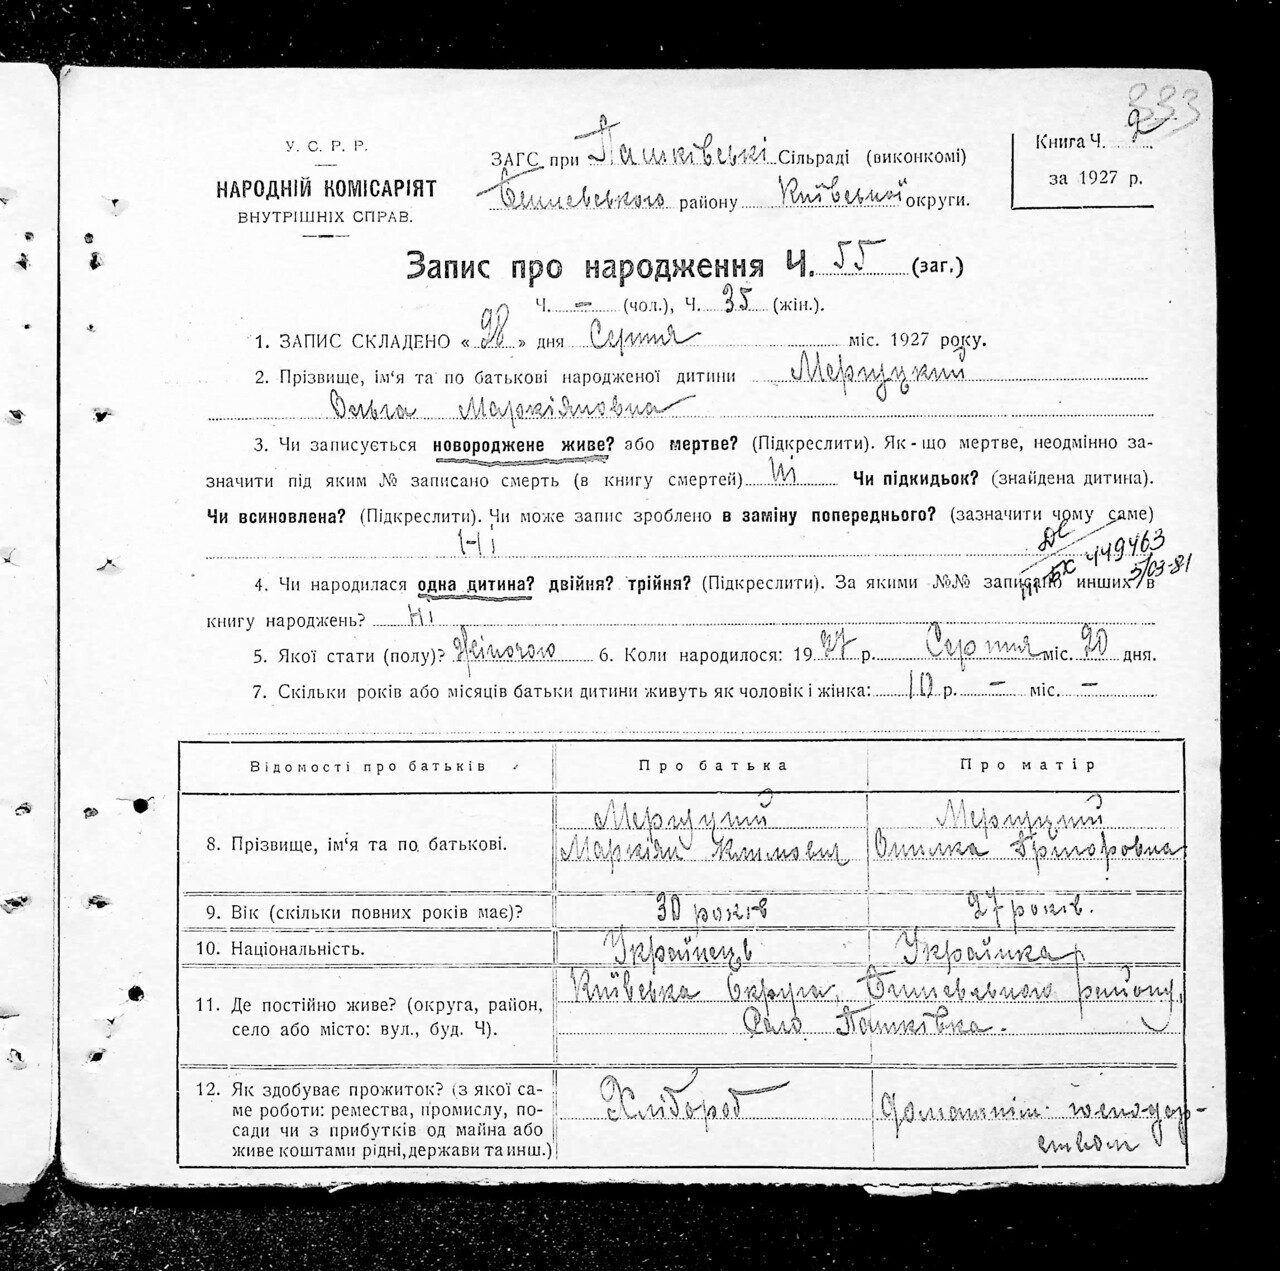 333
У. С. Р. Р.
НАРОДНІЙ КОМІСАРІЯТ
ВНУТРІШНІХ СПРАВ.
ЗАГС при Пашківські Сільраді (виконкомі)
Бишевського району Київської округи.
Книга Ч. 2.
за 1927 р.
Запис про народження Ч. 55 (заг.)
Ч. – (чол.), Ч. 35 (жін.).
1. ЗАПИС СКЛАДЕНО « 28 » дня Серпня міс. 1927 року.
2. Прізвище, ім'я та по батькові народженої дитини
Ольга Маркіяновна
3. Чи записується новороджене живе? або мертве? (Підкреслити). Як-що мертве, неодмінно за-
значити під яким № записано смерть (в книгу смертей) Ні Чи підкидьок? (знайдена дитина).
Чи всиновлена? (Підкреслити). Чи може запис зроблено в заміну попереднього? (зазначити чому саме)
Ні
449463
5/03-81
4. Чи народилася одна дитина? двійня? трійня? (Підкреслити). За якими №№ записано инших в
книгу народжень? Ні
5. Якої стати (полу)? Жіночого 6. Коли народилося: 1927 р. Серпня міс. 20 дня.
7. Скільки років або місяців батьки дитини живуть як чоловік і жінка: 10 р. – міс. –
Відомості про батьків Про батька Про матір
8. Прізвище, ім'я та по батькові.
Маркіян Климович Григоровна
9. Вік (скільки повних років має)? 30 років 27 років.
10. Національність. Українець Українка
11. Де постійно живе? (округа, район,
село або місто: вул., буд. Ч).
Київська Округа, Бишевського району,
Село Пашківка.
12. Як здобуває прожиток? (з якої са-
ме роботи: ремества, промислу, по-
сади чи з прибутків од майна або
живе коштами рідні, держави та инш.)
Хлібороб
домашнім господар-
ством